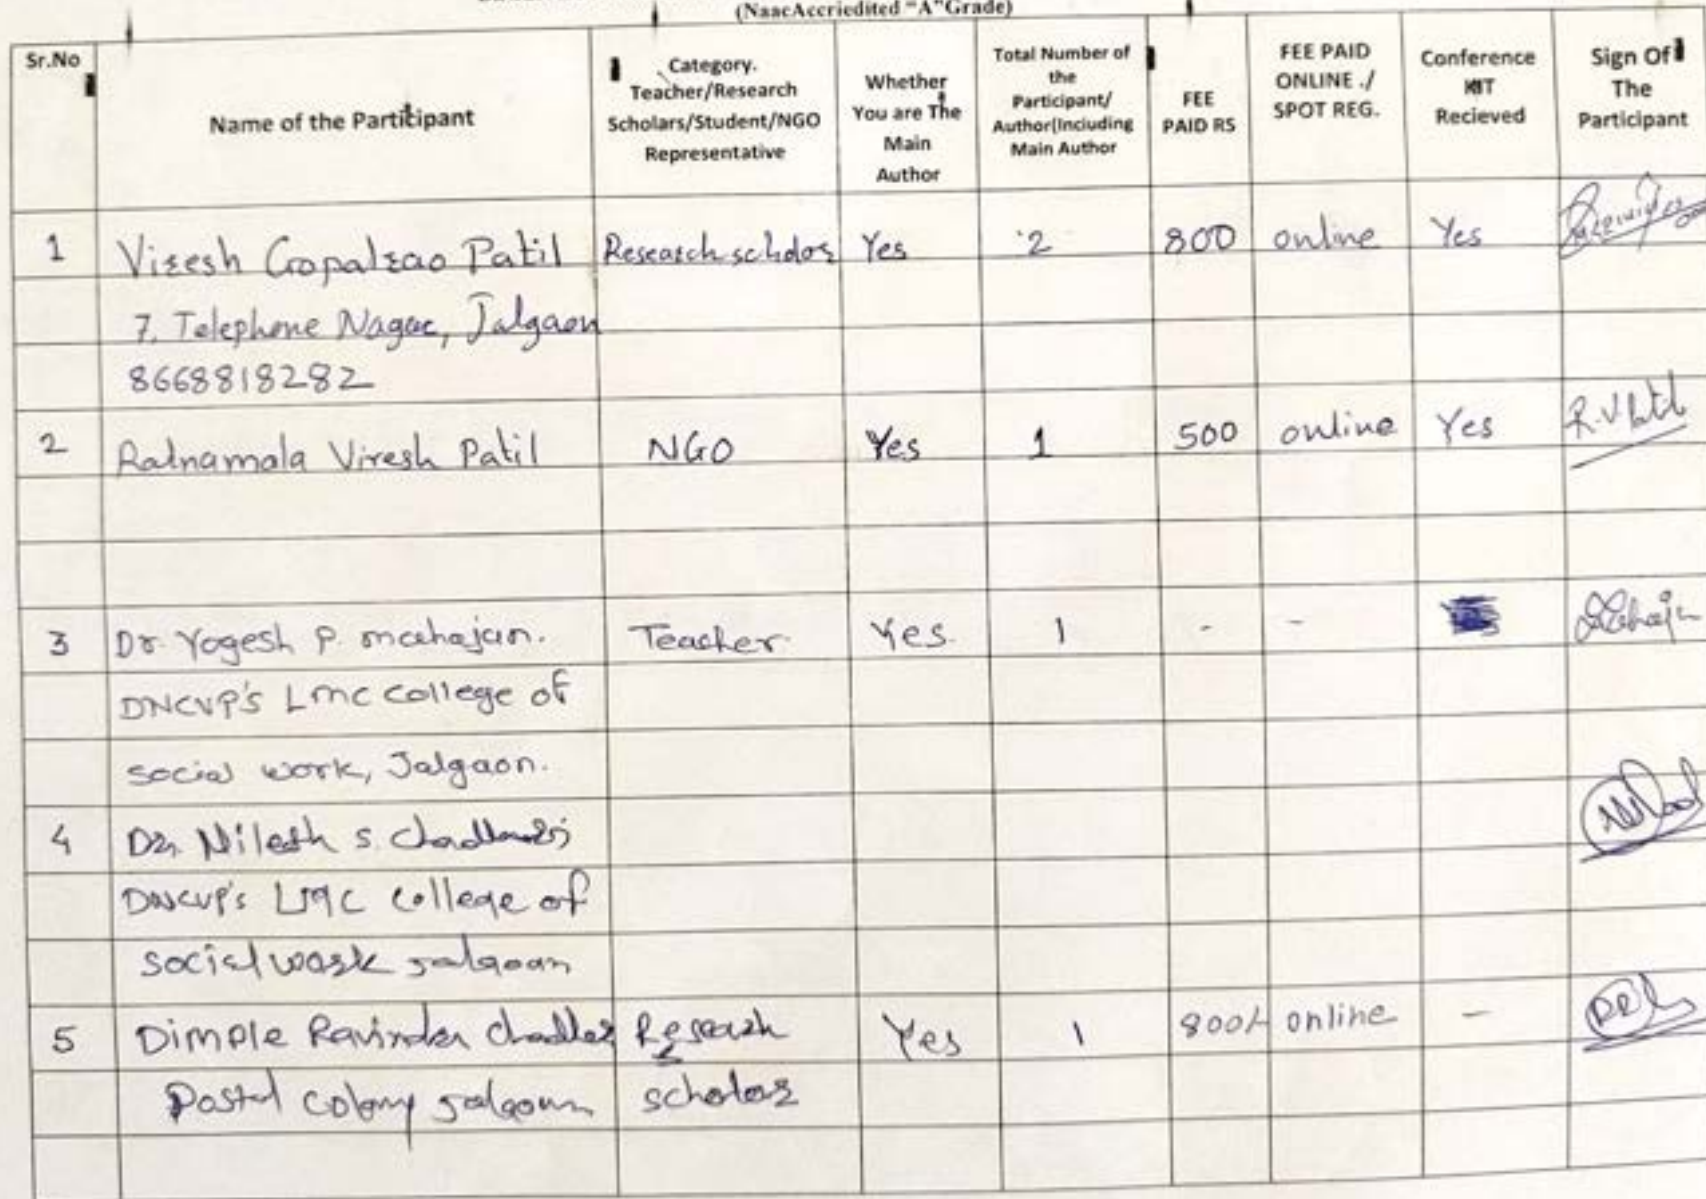 (NaacAccriedited "A"Grade)
Sr.No Name of the Participant Category. Teacher/Research Scholars/Student/NGO Representative Whether You are The Main Author Total Number of the Participant/ Author(Including Main Author FEE PAID RS FEE PAID ONLINE ./ SPOT REG. Conference KIT Recieved Sign Of The Participant
1 Viresh Gopalrao Patil Research scholar Yes 2 800 online Yes
7, Telephone Nagar, Jalgaon
8668818282
2 Ratnamala Viresh Patil NGO Yes 1 500 online Yes R.V.Patil
3 Dr. Yogesh P. mahajan. Teacher. Yes. 1 - -
DNCVP's Lmc college of
social work, Jalgaon.
4 Dr. Nilesh S.
DNCVP's LMC college of
social work Jalgaon
5 Dimple Ravinder Research Yes 1 800/- online -
Postal colony Jalgaon scholar